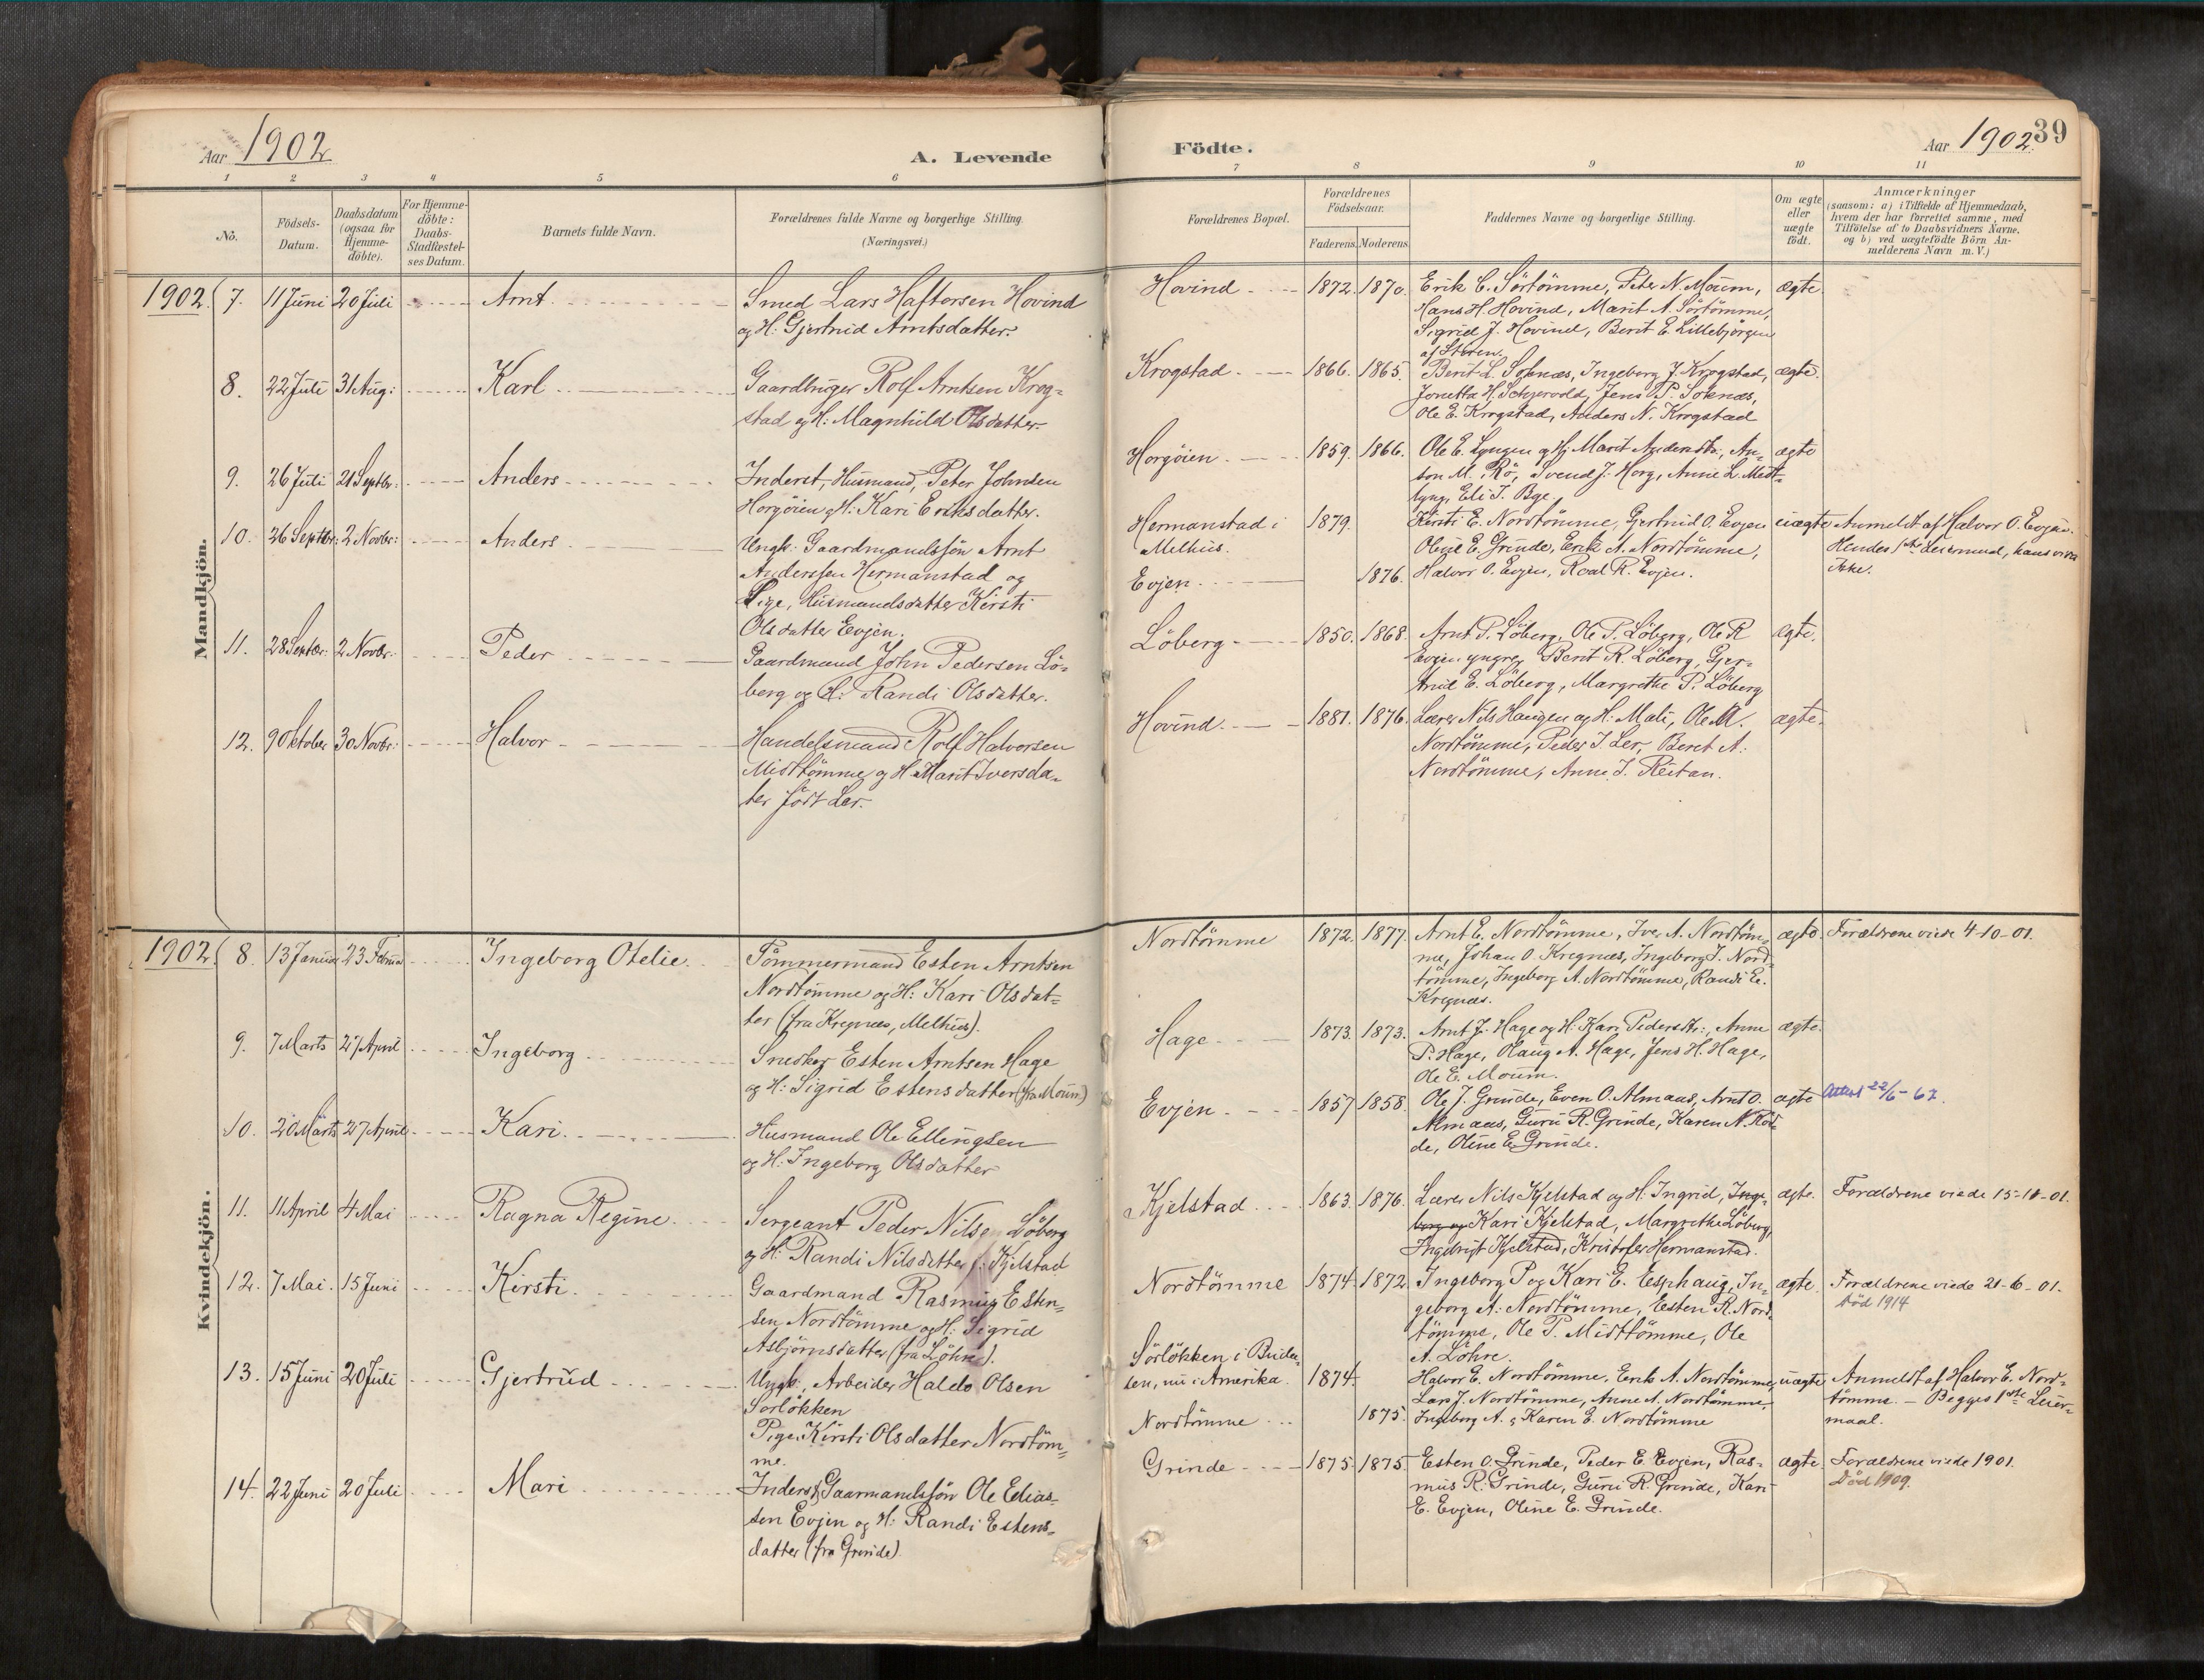 Aar 1902
A. Levende
Födte.
Aar 1902.
39
1 2 3 4 5 6 7 8 9 10 11
No.
Födsels-
Datum.
Daabsdatum
(ogsaa for
Hjemme-
döbte).
For Hjemme-
döbte:
Daabs-
Stadfæstel-
ses Datum.
Barnets fulde Navn.
Forældrenes fulde Navne og borgerlige Stilling.
(Næringsvei.)
Forældrenes Bopæl.
Forældrenes
Födselsaar.
Faderens. Moderens.
Faddernes Navne og borgerlige Stilling.
Om ægte
eller
uægte
födt.
Anmærkninger
(saasom: a) i Tilfælde af Hjemmedaab,
hvem der har forrettet samme, med
Tilföielse af to Daabsvidners Navne.
og b) ved uægtefödte Börn An-
melderens Navn m. V.)
Mandkjön.
1902. 7. 11 Juni 20 Juli Arnt
Smed Lars Haftorsen Hovind
og H: Gjertrud Arntsdatter.
Hovind 1872. 1870.
Erik E. Sörtömme, Peter N. Moum,
Hans H. Hovind, Marit A. Sörtömme,
Sigrid J. Hovind, Berit E. Lillebjörgen
af Stören.
ægte.
8. 22 Juli 31 Aug: Karl
Gaardbruger Rolf Arntsen Krog-
stad og H: Magnhild Olsdatter.
Krogstad 1866. 1865.
Berit L. Soknæs, Ingeborg J. Krogstad,
Jonetta H. Schjervold, Jens P. Soknæs,
Ole E. Krogstad, Anders N. Krogstad
ægte.
9. 26 Juli 21 Septbr: Anders
Inderst, Husmand, Peter Johnsen
Horgöien og H: Kari Eriksdatter.
Horgöien 1859. 1866.
Ole E. Lyngen og H: Marit Andersdtr., An-
ton M. Rö, Svend J. Horg, Anne L. Mest-
lyng, Eli I. Bye
ægte
10. 26 Septbr: 2 Novbr: Anders
Ungk: Gaardmandssön Arnt
Anderssen Hermanstad og
Pige, Husmandsdatter Kirsti
Olsdatter Evjen.
Hermanstad i
Melhus. 1879.
Evjen 1876.
Kirsti E. Nordtömme, Gjertrud O. Evjen
Oline E. Grinde, Erik A. Nordtömme,
Halvor O. Evjen, Roal R. Evjen.
uægte
Anmeldt af Halvor O. Evjen.
Hendes 1ste Leiermaal, hans vides
ikke.
11. 28 Septbr: 2 Novbr: Peder
Gaardmand John Pedersen Lö-
berg og H: Randi Olsdatter.
Löberg 1850. 1868.
Arnt P. Löberg, Ole P. Löberg, Ole R
Evjen yngre, Berit R. Löberg, Gjer-
trud E. Löberg, Margrethe P. Löberg
ægte.
12. 9 Oktober 30 Novbr: Halvor
Handelsmand Rolf Halvorsen
Midttömme og H: Marit Iversda-
ter födt Ler.
Hovind 1881. 1876.
Lærer Nils Haugen og H: Mali, Ole A.
Nordtömme, Peder I. Ler, Beret A.
Nordtömme, Anne J. Reitan.
ægte.
Kvindekjön.
1902. 8. 13 Januar 23 Februar Ingeborg Otelie.
Tömmermand Esten Arntsen
Nordtömme og H: Kari Olsdat-
ter (fra Kregnæs, Melhus).
Nordtömme 1872. 1877.
Arnt E. Nordtömme, Iver A. Nordtöm-
me, Johan O. Kregnæs, Ingeborg J. Nord-
tömme, Ingeborg A. Nordtömme, Randi E.
Kregnæs.
ægte.
Forældrene viede 4-10-01.
9. 7 Marts 27 April Ingeborg
Snedker Esten Arntsen Hage
og H: Sigrid Estensdatter (fra Moum)
Hage 1873. 1873.
Arnt J. Hage og H: Kari Pedersdtr:, Anne
P. Hage, Olaug A. Hage, Jens H. Hage,
Ole E. Moum.
ægte.
10. 20 Marts 27 April Kari
Husmand Ole Ellingsen
og H: Ingeborg Olsdatter
Evjen 1857 1858.
Ole J. Grinde, Even O. Almaas, Arnt O.
Almaas, Guru R. Grinde, Karen N. Rod-
de, Oline E. Grinde.
ægte
Attest 22/6-67.
11. 11 April 4 Mai Ragna Regine
Sergeant Peder Nilsen Löberg
og H: Randi Nilsdatter f. Kjelstad
Kjelstad 1863. 1876.
Lærer Nils Kjelstad og H: Ingrid, Inge-
borg og Kari Kjelstad, Margrethe Löberg,
Ingebrigt Kjelstad, Kristofer Hermanstad.
ægte.
Forældrene viede 15-11-01.
12. 7 Mai. 15 Juni Kirsti
Gaardmand Rasmus Esten-
sen Nordtömme og H: Sigrid
Asbjörnsdatter (fra Löhre).
Nordtömme 1874. 1872.
Ingeborg P. og Kari E. Esphaug, In-
geborg A. Nordtömme, Esten R. Nord-
tömme, Ole P. Midttömme, Ole
A. Löhre.
ægte
Forældrene viede 21-6-01.
Död 1914
13. 15 Juni 20 Juli Gjertrud
Ungk:, Arbeider Haldo Olsen
Sörlökken
Pige Kirsti Olsdatter Nordtöm-
me.
Sörlökken i Buda-
len, nu i Amerika. 1874.
Nordtömme 1875.
Halvor E. Nordtömme, Erik A. Nordtömme,
Lars J. Nordtömme, Anne A. Nordtömme,
Ingeborg A. & Karen E. Nordtömme
uægte
Anmeldt af Halvor E. Nord-
tömme. – Begges 1ste Leier-
maal.
14. 22 Juni 20 Juli Mari
Inderst, Gaarmandssön Ole Elias-
sen Evjen og H: Randi Estens-
datter (fra Grinde)
Grinde 1875. 1875.
Esten O. Grinde, Peder E. Evjen, Ras-
mus R. Grinde, Guru R. Grinde, Kari
E. Evjen, Oline E. Grinde.
ægte.
Forældrene viede 1901.
Död 1909.